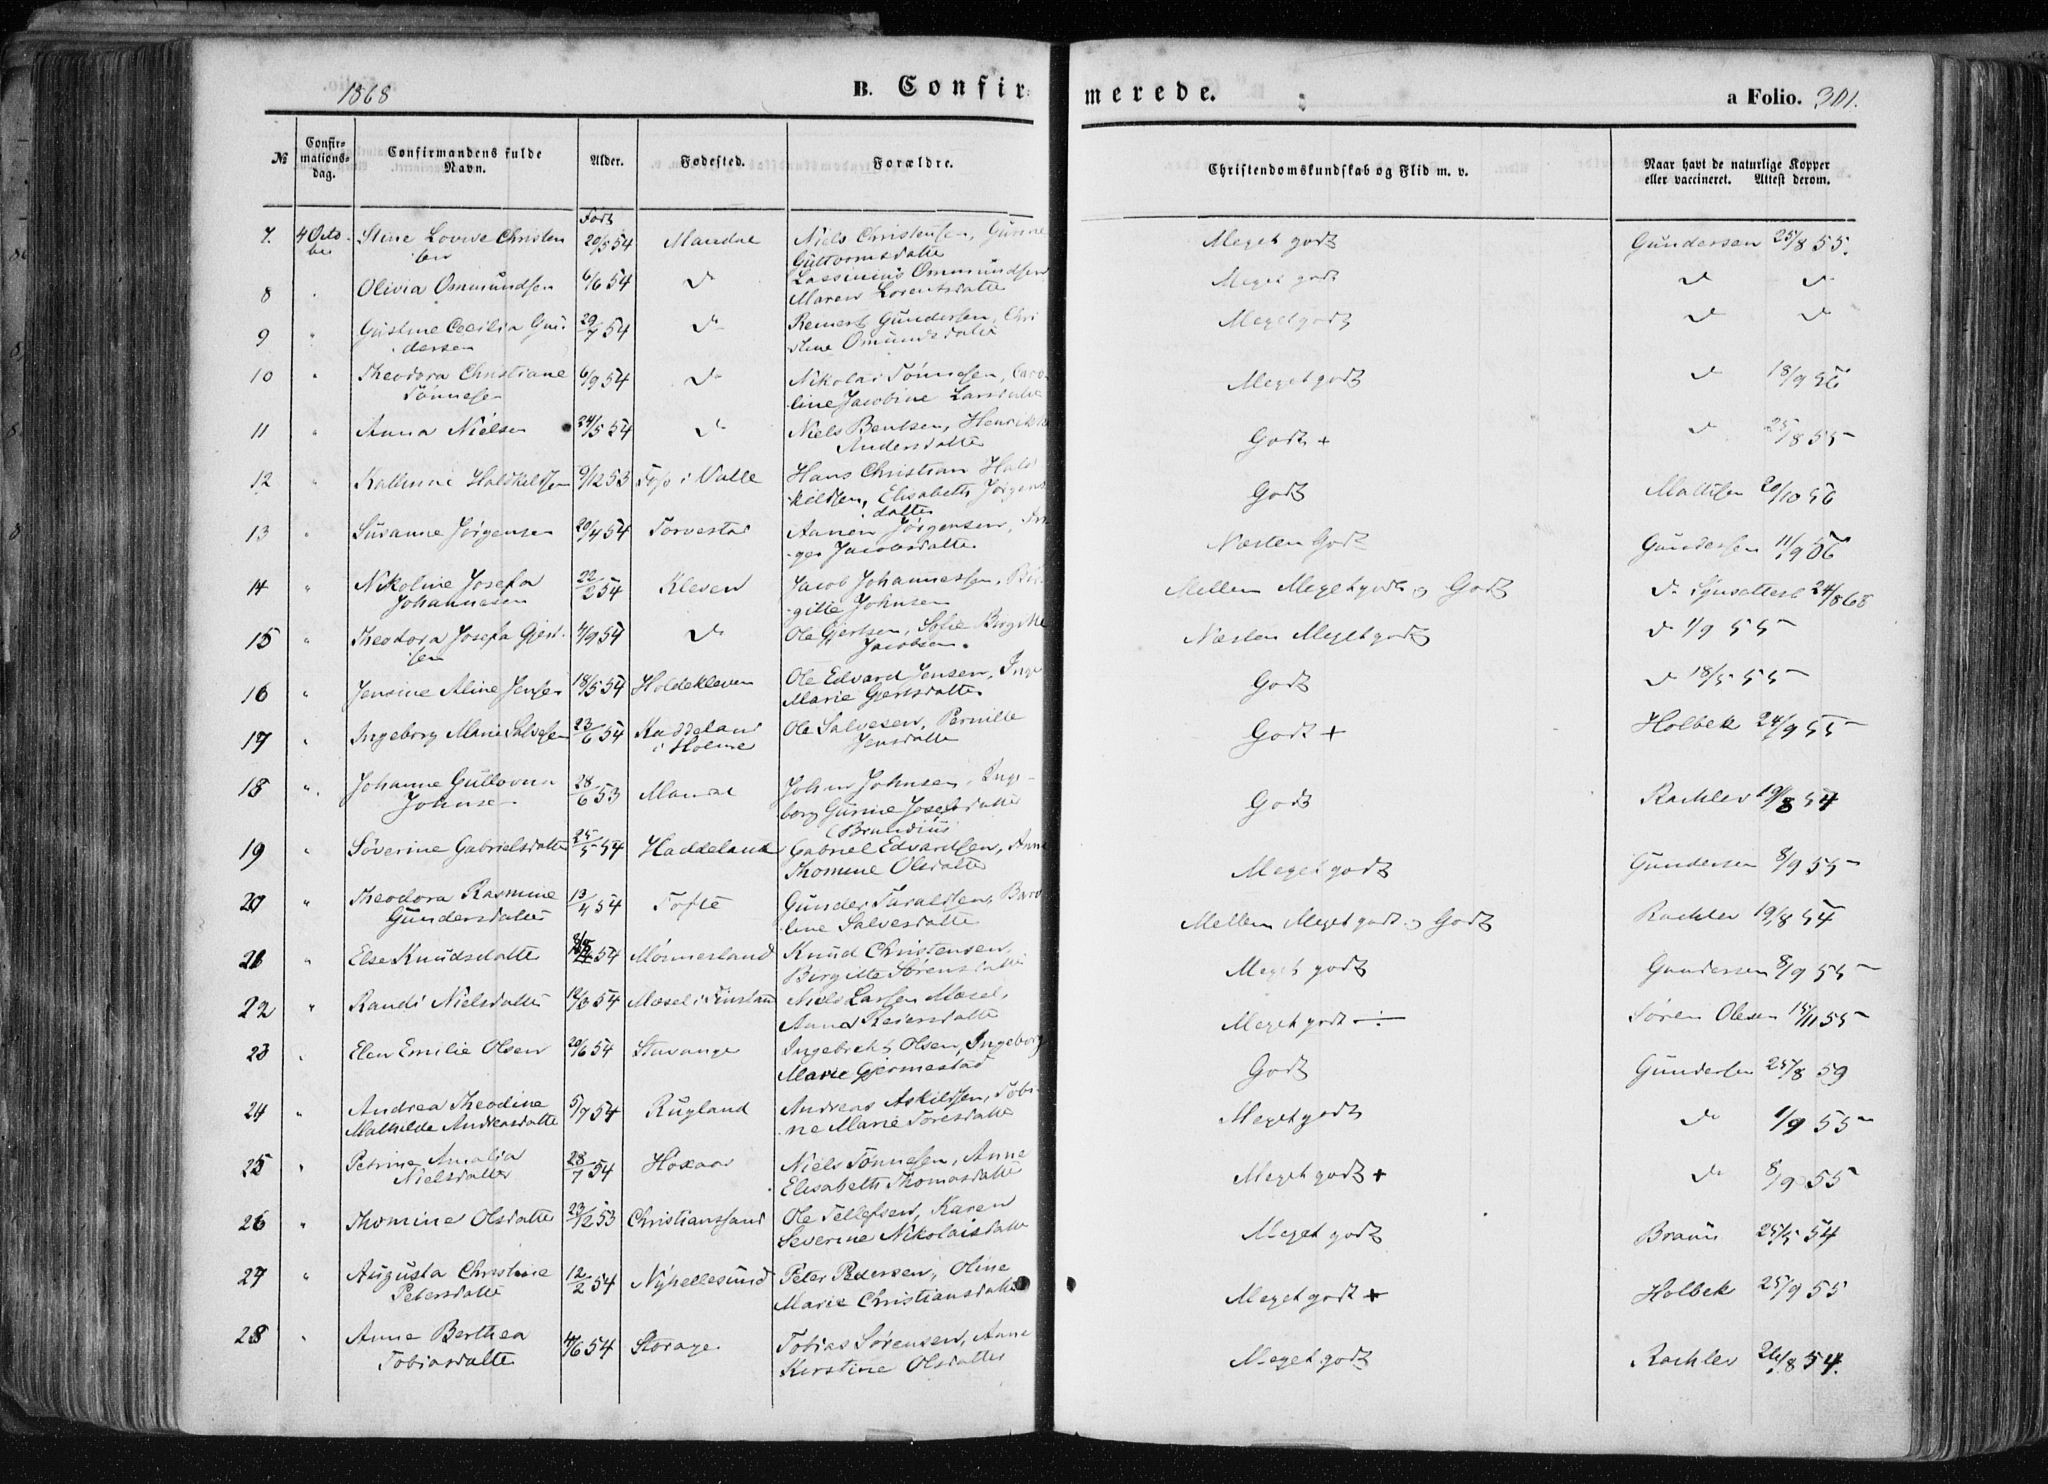 1868 B. Confirmerede. a Folio. 301.
№ Confirmationsdag. Confirmandens fulde Navn. Alder. Fødested. Forældre. Christendomskundskab og Flid m. v. Naar havt de naturlige Kopper eller vaccineret. Attest derom.
Født
7. 4 Octo- Stine Lovise Christen 20/5 54 Mandal Niels Christensen, Gurine Meget godt Gundersen 25/8 55.
ber sen Guttormsdatter
8 " Olivia Ommundsen 6/6 54 do Lassinius Ommundsen Meget godt do do
Maren Lorentsdatter
9 " Gustine Cecilia Gun- 29/7 54 do Reinert Gundersen, Chri Meget godt do do
dersen stine Omundsdatter
10 " Theodora Christiane 6/9 54 do Nikolai Tönnesen, Caro- Meget godt do 18/9 56
Tönnesen line Jacobine Larsdatter
11 " Anna Nielsen 24/5 54 do Niels Bentsen, Henrikke Godt + do 25/8 55
Andersdatter
12 " Kathrine Halskildsen 9/12 53 Foss i Valle Hans Christian Hals Godt Mathisen 20/10 56
kildsen, Elisabeth Jørgens
datter
13 " Susanne Jørgensen 20/4 54 Torvestad Aanen Jørgensen, In Næsten Godt Gundersen 11/9 56
ger Jacobsdatter
14 " Nikoline Josefa 22/2 54 Kleven Jacob Johannessen, Bir Mellem Meget godt og Godt do Synsattest 24/8 68
Johannesen gitte Johnsen
15 " Theodora Josefa Gjert- 4/9 54 do Ole Gjertsen, Sofie Birgitte Næsten Meget godt do 1/9 55
sen Jacobsen.
16 " Jensine Aline Jensen 18/5 54 Holdekleven Ole Edvard Jensen, Inge Godt do 18/5 55
Marie Gertsdatter
17 " Ingeborg Marie Salvesen 23/6 54 Kaddeland Ole Salvesen, Pernille Godt + Holbek 24/9 55
i Holme Jensdatter
18 " Johanne Guttorm 28/6 53 Mandal John Johnsen, Inge- Godt Rachlev 19/8 54
Johnsen borg Gurine Josefsdatter
Brandius
19 " Søverine Gabrielsdatter 25/5 54 Haddeland Gabriel Edvardsen, Anne Meget godt Gundersen 8/9 55
Thomine Olsdatter
20 " Theodora Rasmine 13/4 54 Tofte Gunder Taraldsen, Baro Mellem Meget godt og Godt Rachlev 19/8 54
Gundersdatter line Salvesdatter
21 " Else Knudsdatter 54 Mønnesland Knud Christensen, Meget godt Gundersen 8/9 55
Birgitte Sørensdatter
22 " Randi Nielsdatter 12/6 54 Møsel i Finsland Niels Larsen Møsel, Meget godt ÷ Søren Olesen 15/11 55
Anna Reiersdatter
23 " Elen Emilie Olsen 20/6 54 Stavanger Ingebreckt Olsen, Ingeborg Godt Gundersen 25/8 59
Marie Gjermestad
24 " Andrea Theodine 5/7 54 Rugland Andreas Askildsen, Tobi- Meget godt do 1/9 55
Mathilde Andreasdatter ne Marie Toresdatter
25 " Petrine Amalia 28/7 54 Hoxaas Niels Tönnesen, Anne Meget godt + do 8/9 55
Nielsdatter Elisabeth Thomasdatter
26 " Thomine Olsdatter 23/12 53 Christianssand Ole Tellefsen, Karen Meget godt Braun 25/5 54
Severine Nikolaisdatter
27 " Augusta Christine 12/2 54 Nyhellesund Peter Pedersen, Oline Meget godt + Holbek 25/9 55
Petersdatter Marie Christiansdatter
28 " Anne Berthea 4/6 54 Storage Tobias Sørensen, Anne Meget godt Rachlev 24/8 54.
Tobiasdatter Kirstine Olsdatter